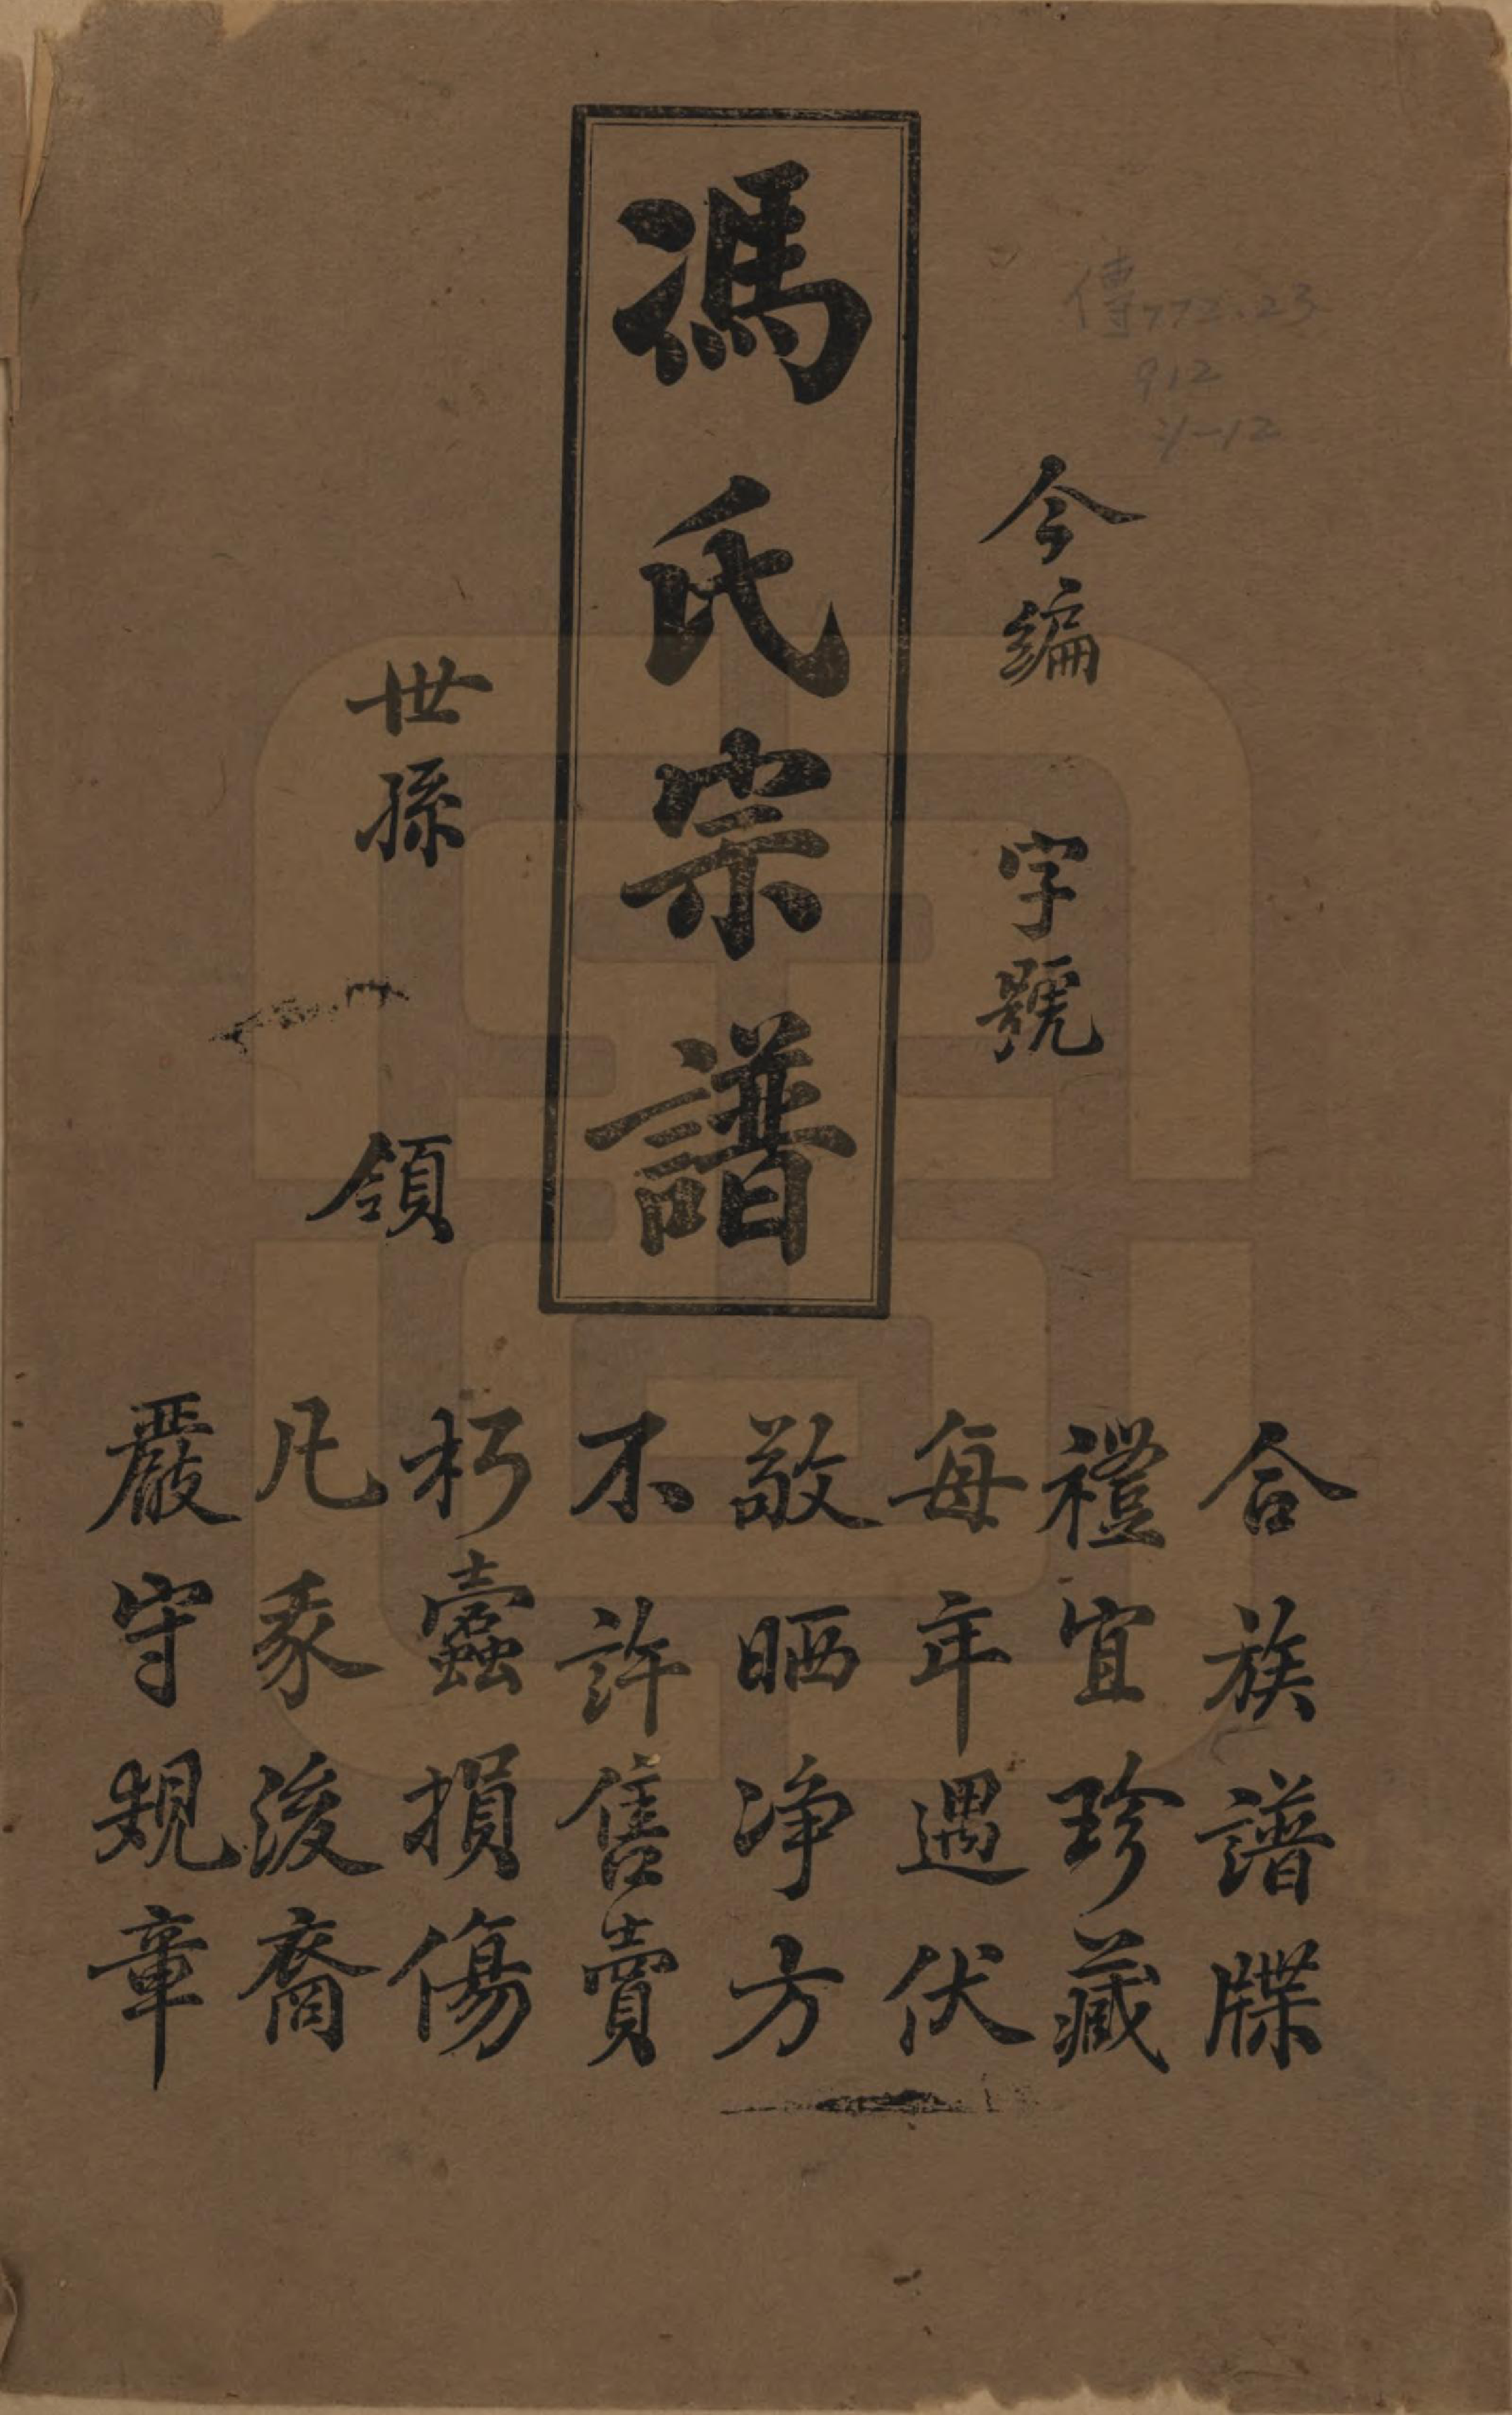 傳772.23
912
:1-12
今編　字號
馮氏宗譜
世孫　領
合族譜牒
禮宜珍藏
每年遇伏
敬晒净方
不許售賣
朽蠹損傷
凡豖後裔
嚴守規章